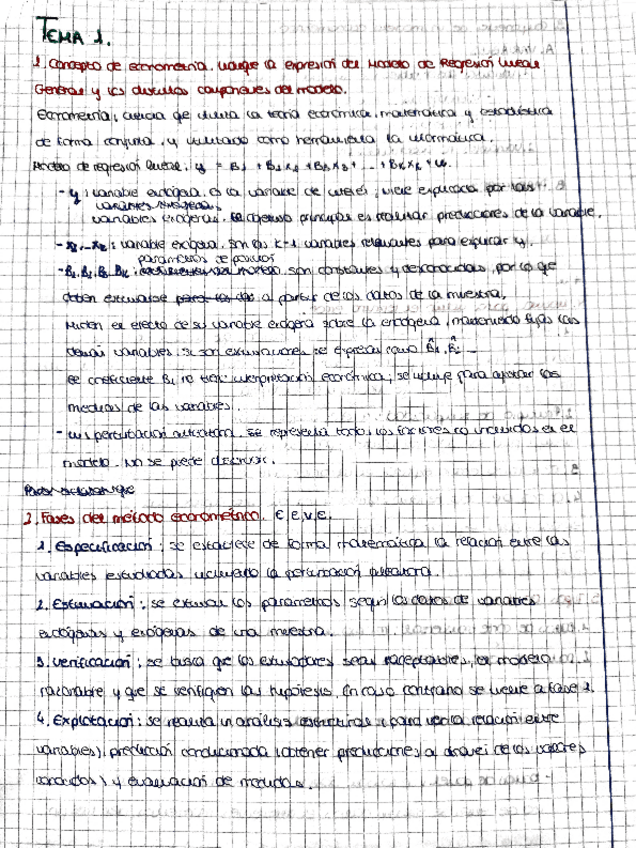 TEMA 1.
1. Concepto de econometría. Incluye la expresión del Modelo de Regresión Lineal
General y los distintos componentes del modelo.
Econometría: ciencia que utiliza la teoría económica, matemática y estadística
de forma conjunta, y utilizado como herramienta la informática.
Modelo de regresión lineal: y = B1 + B2X2 + B3X3 + ... + BkXk + u.
- y: variable endógena o la variable de interés, viene explicada por las
variables exógenas.
variables exógenas. El objetivo principal es realizar predicciones de la variable.
- X2...Xk: variable exógena. Son las k-1 variables relevantes para explicar y.
parámetros de posición
- B1, B2, B3, Bk: son constantes y desconocidas, por lo que
deben estimarse a partir de los datos de la muestra.
Miden el efecto de su variable exógena sobre la endógena, manteniendo fijas las
demás variables. Si son estimadores se expresan como B̂1, B̂2
El coeficiente B1 no tiene interpretación económica, se incluye para ajustar las
medias de las variables.
- u: perturbación aleatoria. Se representa todos los factores no incluidos en el
modelo. No se puede
2. Fases del método econométrico. E.E.V.E.
1. Especificación: se establece de forma matemática la relación entre las
variables estudiadas incluyendo la perturbación aleatoria.
2. Estimación: se estiman los parámetros según los datos de variables
endógenas y exógenas de una muestra.
3. Verificación: se busca que los estimadores sean aceptables, el modelo
razonable y que se verifiquen las hipótesis. En caso contrario se vuelve a fase 1.
4. Explotación: se realiza un análisis estructural (para ver la relación entre
variables), predicción condicionada (obtener predicciones a través de los valores
conocidos) y evaluación de medidas.